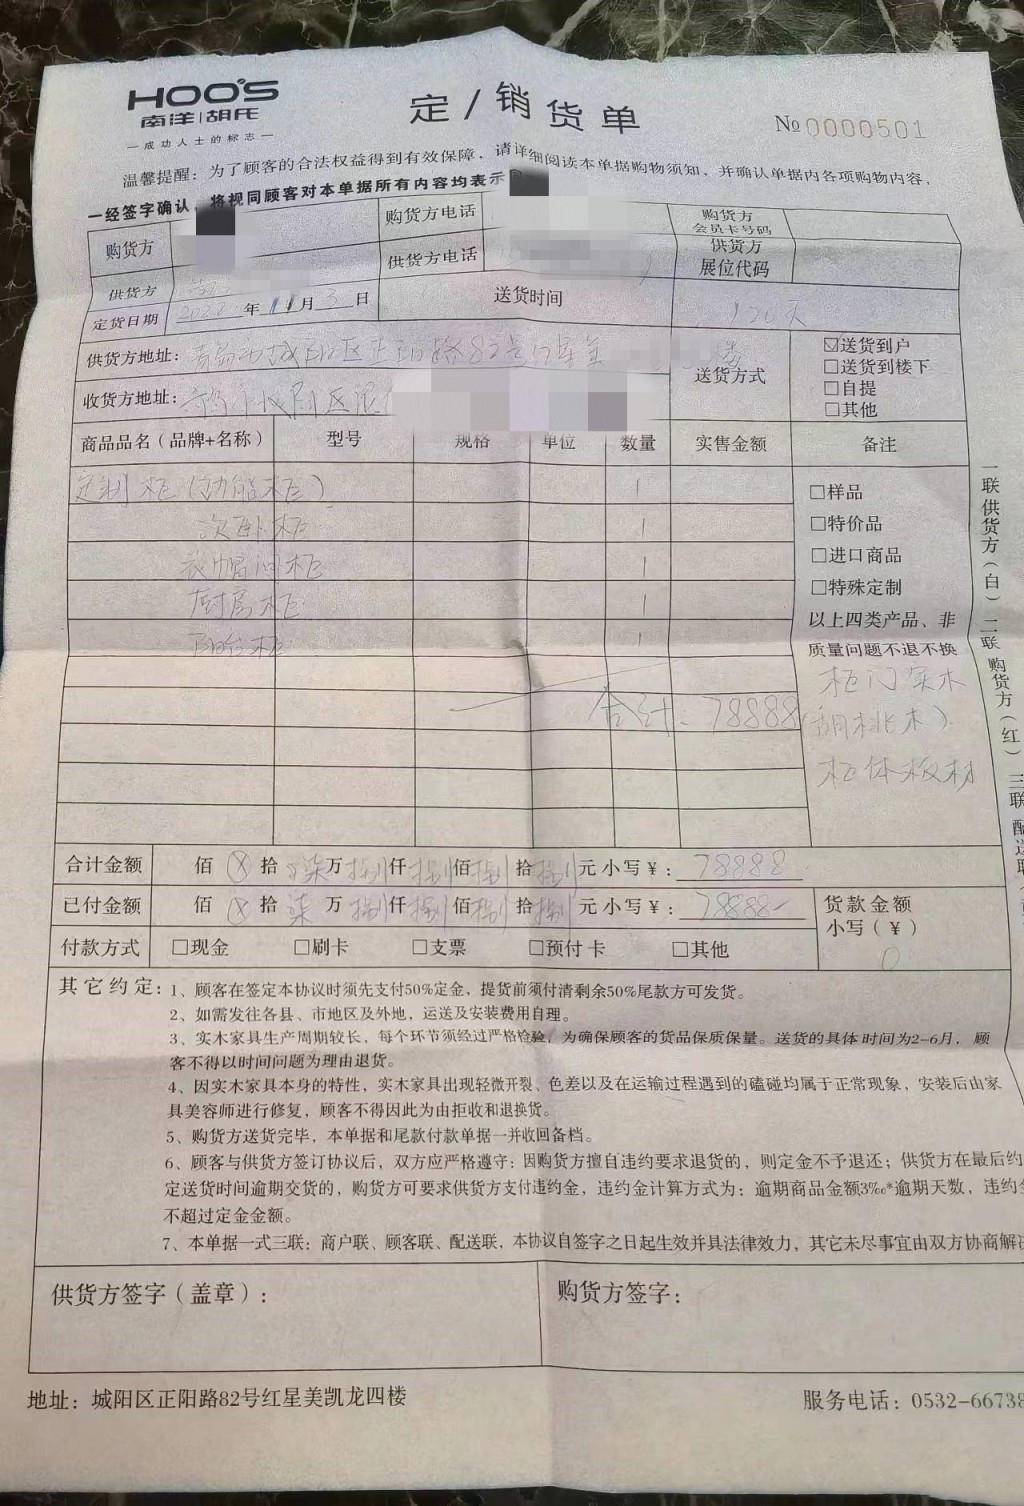 HOO'S
南洋|胡氏
—成功人士的标志—
定/销货单
№0000501
温馨提醒：为了顾客的合法权益得到有效保障，请详细阅读本单据购物须知，并确认单据内各项购物内容，
一经签字确认，将视同顾客对本单据所有内容均表示
购货方
购货方电话
购货方
会员卡号码
供货方
供货方电话
供货方
展位代码
定货日期
2022年11月3日
送货时间
120天
供货方地址：青岛市城阳区正阳路82号红星美 楼
收货方地址：青岛市城阳区
送货方式
☑送货到户
□送货到楼下
□自提
□其他
商品品名（品牌+名称） 型号 规格 单位 数量 实售金额 备注
定制柜（功能柜） 1
次卧柜 1
衣帽间柜 1
厨房柜 1
阳台柜 1
合计：78888
□样品
□特价品
□进口商品
□特殊定制
以上四类产品、非
质量问题不退不换
柜门实木
（胡桃木）
柜体板材
一联供货方（白）二联购货方（红）三联配送联
合计金额 佰 ⊗ 拾 柒 万 捌 仟 捌 佰 捌 拾 捌 元 小写¥：78888
已付金额 佰 ⊗ 拾 柒 万 捌 仟 捌 佰 捌 拾 捌 元 小写¥：78888-
货款金额
小写（¥）
0
付款方式 □现金 □刷卡 □支票 □预付卡 □其他
其它约定：1、顾客在签定本协议时须先支付50%定金，提货前须付清剩余50%尾款方可发货。
2、如需发往各县、市地区及外地，运送及安装费用自理。
3、实木家具生产周期较长，每个环节须经过严格检验，为确保顾客的货品保质保量。送货的具体时间为2-6月，顾
客不得以时间问题为理由退货。
4、因实木家具本身的特性，实木家具出现轻微开裂、色差以及在运输过程遇到的磕碰均属于正常现象，安装后由家
具美容师进行修复，顾客不得因此为由拒收和退换货。
5、购货方送货完毕，本单据和尾款付款单据一并收回备档。
6、顾客与供货方签订协议后，双方应严格遵守：因购货方擅自违约要求退货的，则定金不予退还；供货方在最后约
定送货时间逾期交货的，购货方可要求供货方支付违约金，违约金计算方式为：逾期商品金额3‰*逾期天数，违约金
不超过定金金额。
7、本单据一式三联：商户联、顾客联、配送联，本协议自签字之日起生效并具法律效力，其它未尽事宜由双方协商解决
供货方签字（盖章）：
购货方签字：
地址：城阳区正阳路82号红星美凯龙四楼
服务电话：0532-66738